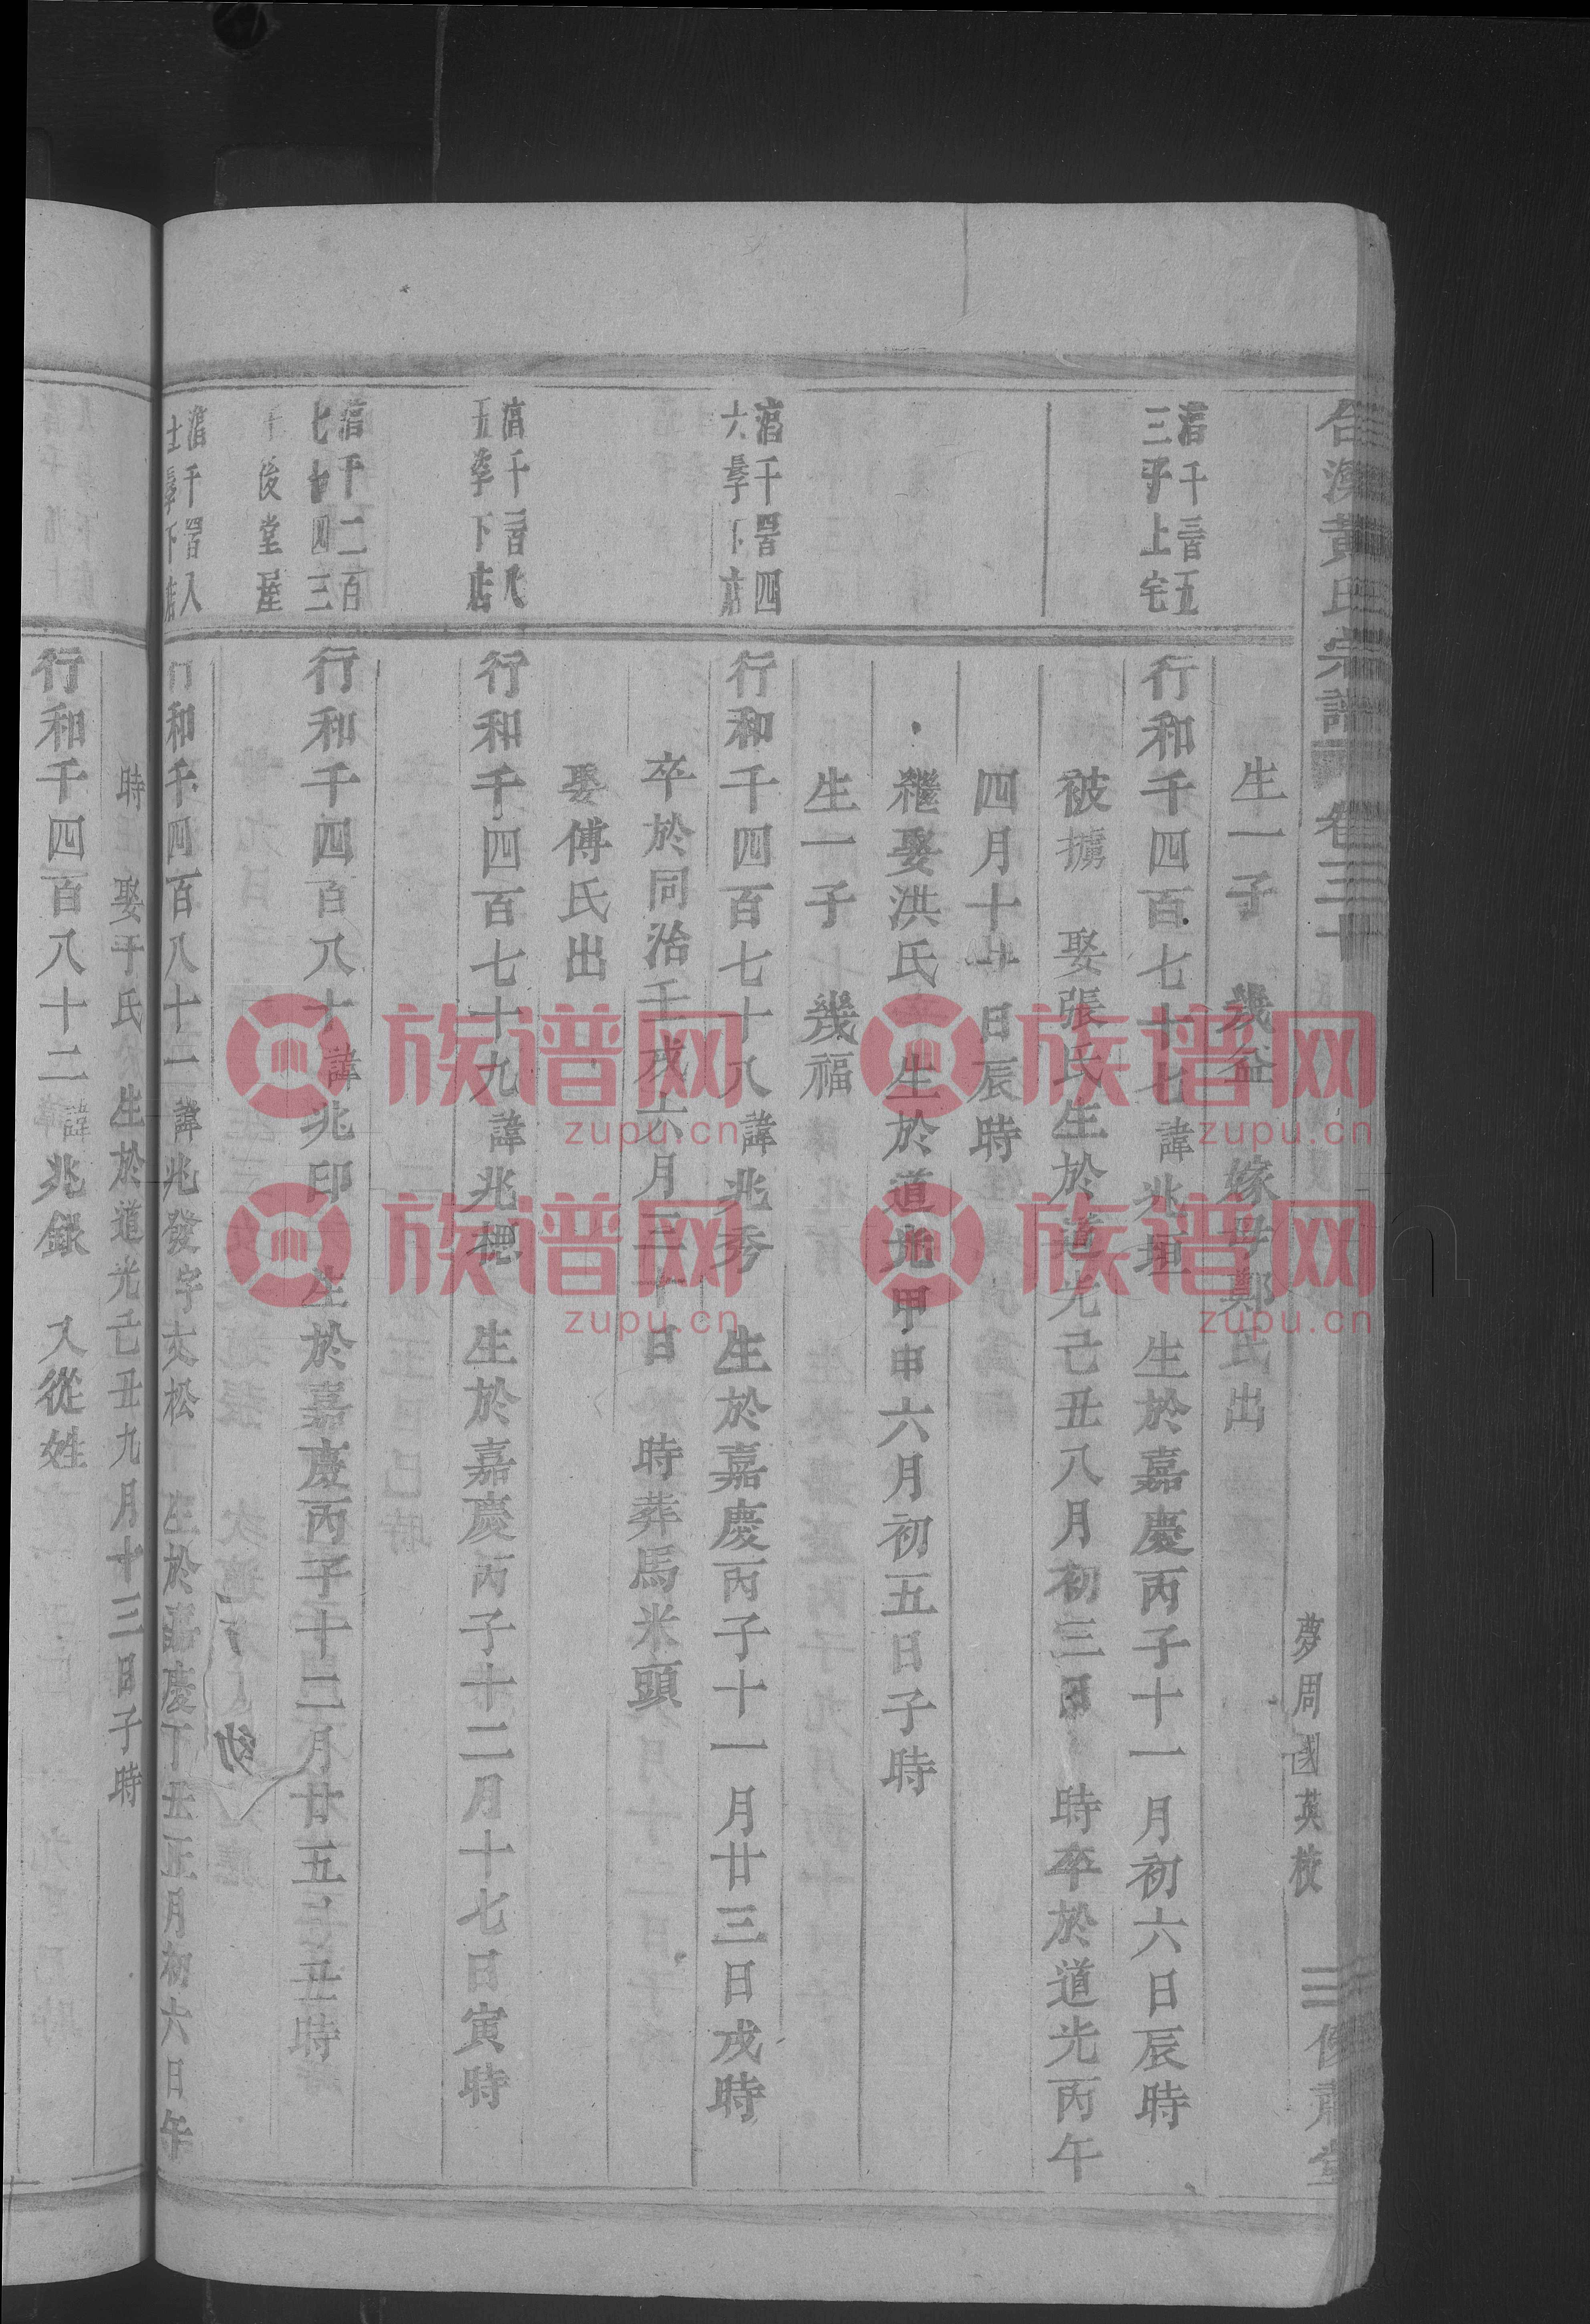 黃氏宗譜 卷三十
夢周國英校
生一子 幾益 嫁母鄭氏出
三子上宅
行和千四百七十七諱兆垣 生於嘉慶丙子十一月初六日辰時
被擄 娶張氏生於道光己丑八月初三日 時卒於道光丙午
四月十廿日辰時
繼娶洪氏 生於道光甲申六月初五日子時
生一子 幾福
行和千四百七十八諱兆秀 生於嘉慶丙子十一月廿三日戌時
卒於同治壬戌六月三十日 時葬馬米頭
娶傅氏出
行和千四百七十九諱兆 生於嘉慶丙子十二月十七日寅時
行和千四百八十諱兆印 生於嘉慶丙子十二月廿五日丑時
後堂屋
幼
行和千四百八十一諱兆發字大松 生於嘉慶丁丑正月初六日午
時 娶于氏 生於道光己丑九月十三日子時
行和千四百八十二諱兆錄 入從姓
族谱网
zupu.cn
族谱网
zupu.cn
族谱网
zupu.cn
族谱网
zupu.cn